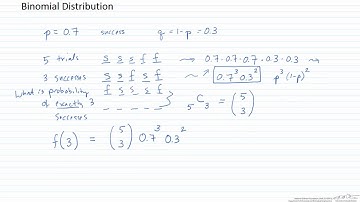 Binomial Distribution
p = 0.7 success q = 1-p = 0.3
5 trials s s s f f → 0.7·0.7·0.7·0.3·0.3
3 successes s s f s f → 0.7³ 0.3² p³(1-p)²
What is probability f s s s f
of exactly 3 ₅C₃ = (5 3)
successes
f(3) = (5 3) 0.7³ 0.3²